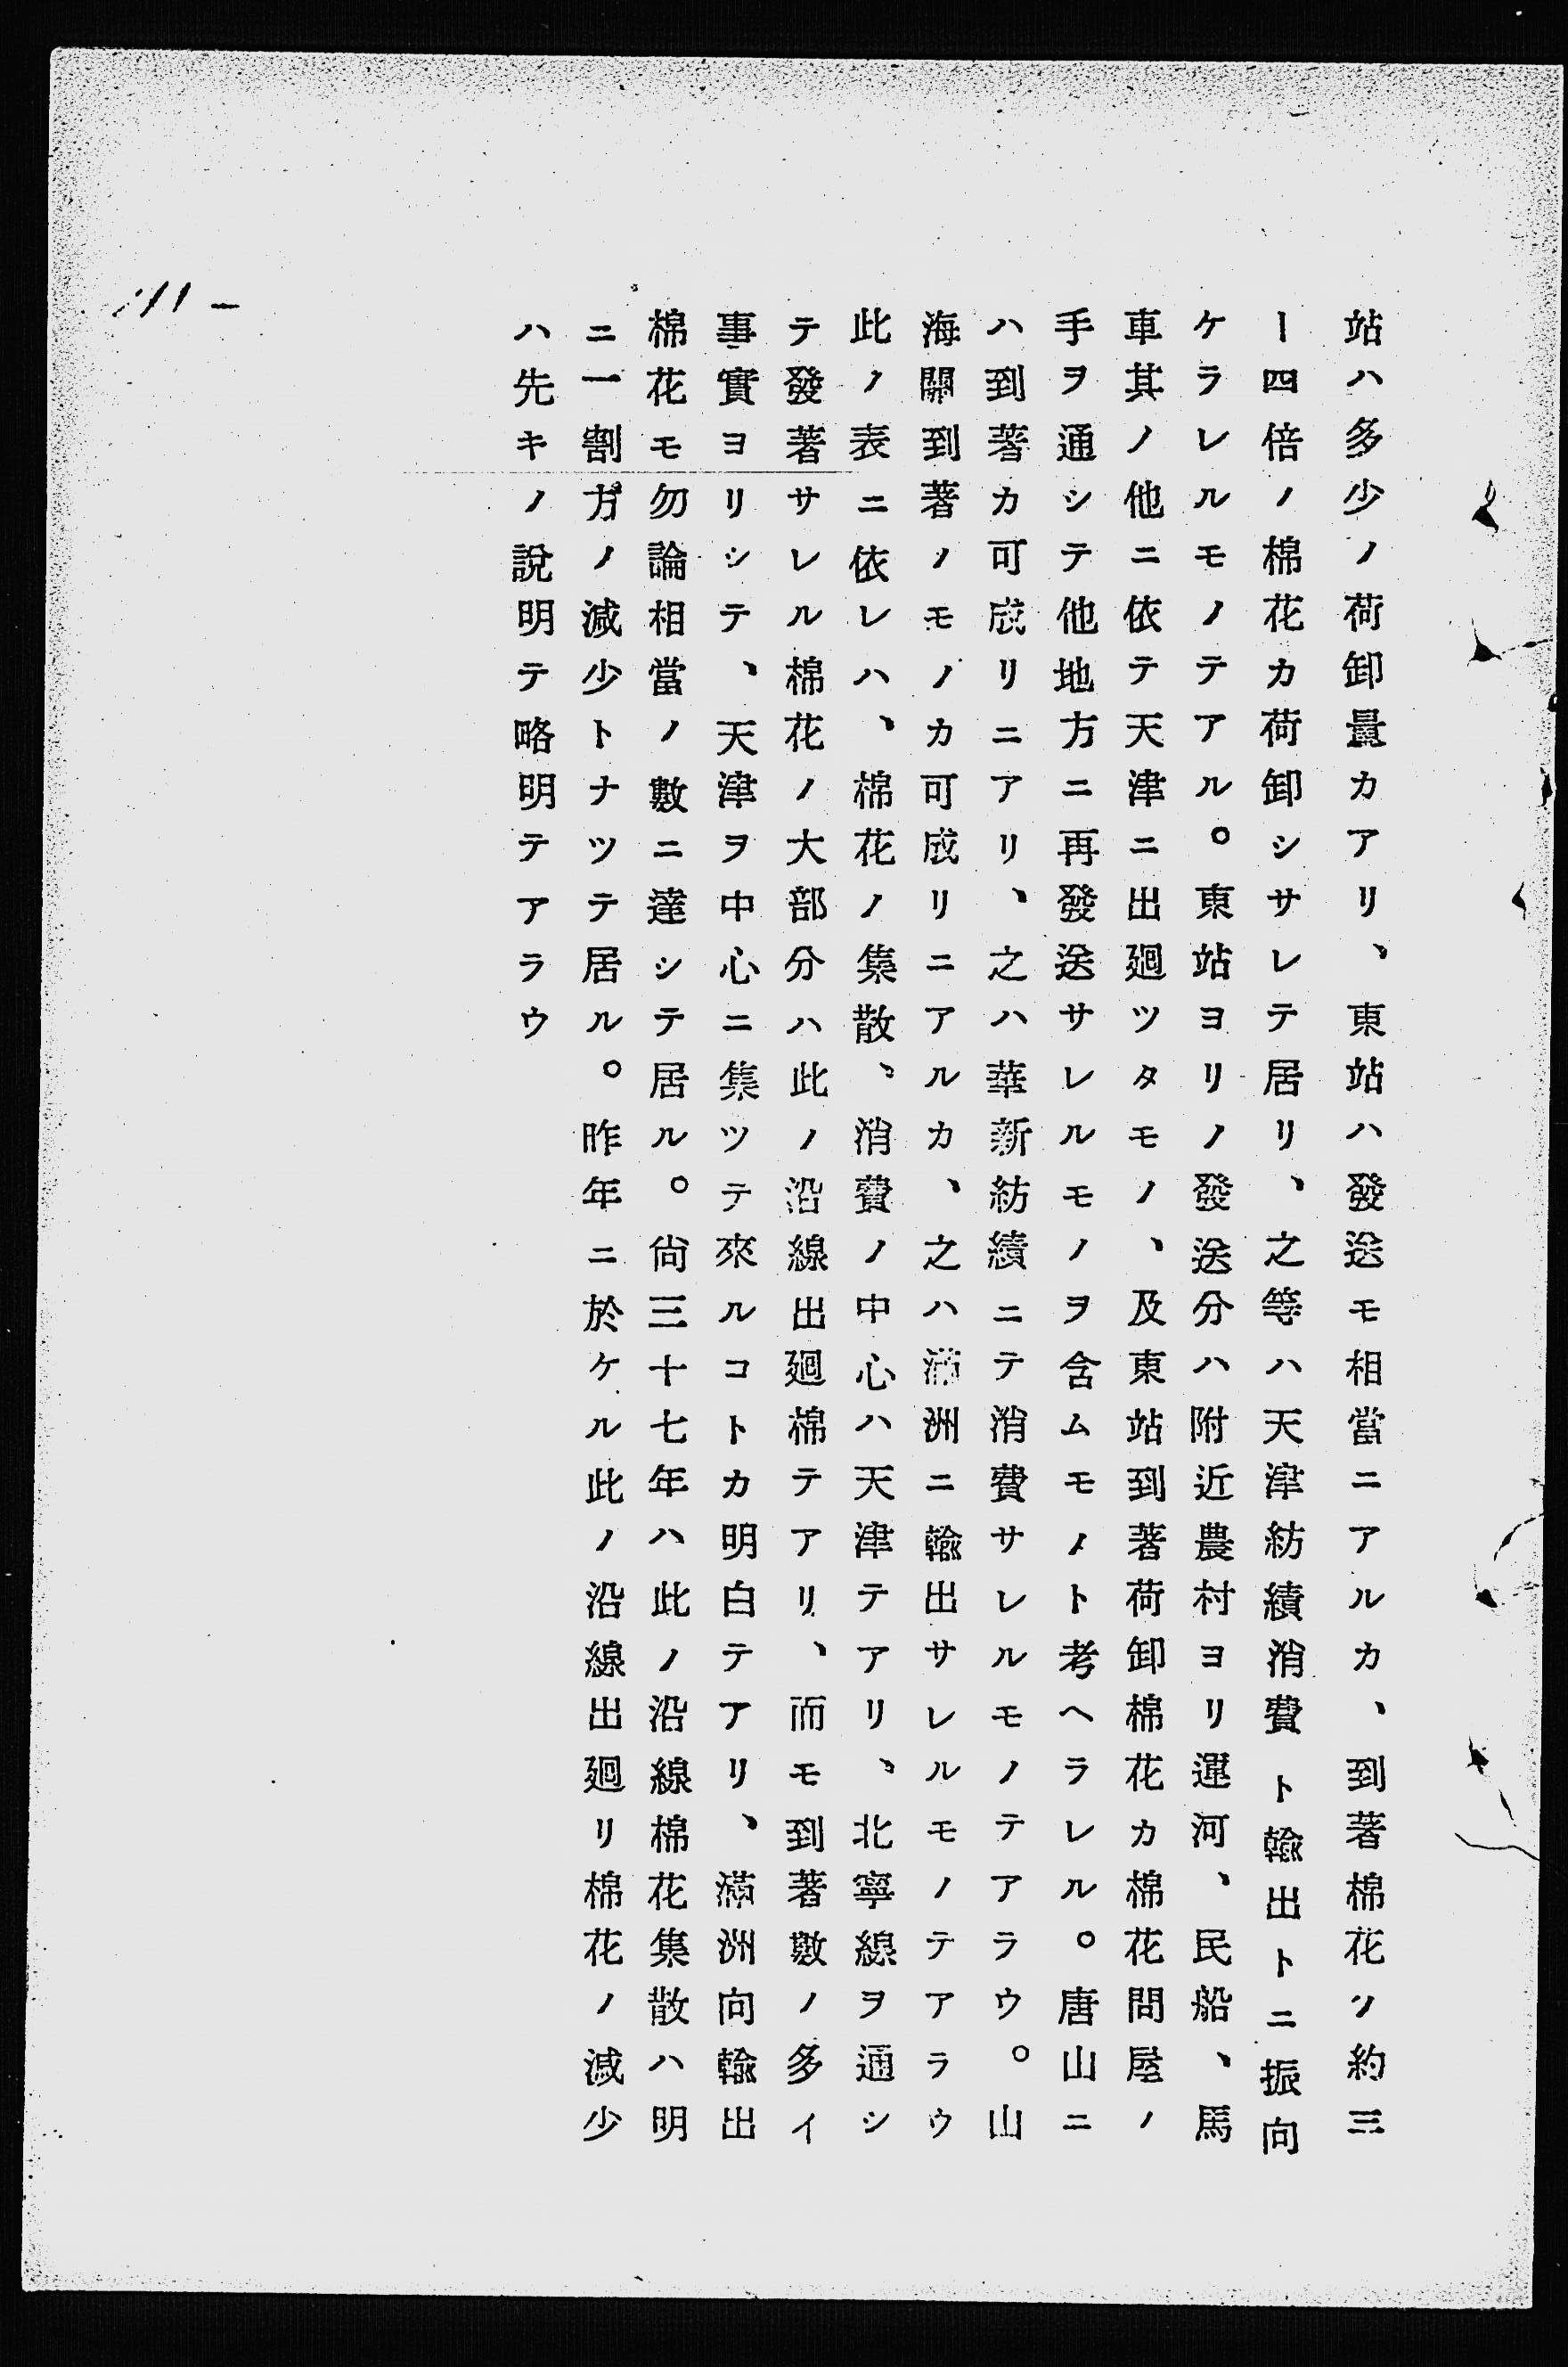 站ハ多少ノ荷卸量カアリ、東站ハ發送モ相當ニアルカ、到著棉花ノ約三
ー四倍ノ棉花カ荷卸シサレテ居リ、之等ハ天津紡績消費ト輸出トニ振向
ケラレルモノテアル。東站ヨリノ發送分ハ附近農村ヨリ運河、民船、馬
車其ノ他ニ依テ天津ニ出廻ツタモノ、及東站到著荷卸棉花カ棉花問屋ノ
手ヲ通シテ他地方ニ再發送サレルモノヲ含ムモノト考ヘラレル。唐山ニ
ハ到著カ可成リニアリ、之ハ華新紡績ニテ消費サレルモノテアラウ。山
海關到著ノモノカ可成リニアルカ、之ハ滿洲ニ輸出サレルモノテアラウ
此ノ表ニ依レハ、棉花ノ集散、消費ノ中心ハ天津テアリ、北寧線ヲ通シ
テ發著サレル棉花ノ大部分ハ此ノ沿線出廻棉テアリ、而モ到著數ノ多イ
事實ヨリシテ、天津ヲ中心ニ集ツテ來ルコトカ明白テアリ、滿洲向輸出
棉花モ勿論相當ノ數ニ達シテ居ル。尙三十七年ハ此ノ沿線棉花集散ハ明
ニ一割方ノ減少トナツテ居ル。昨年ニ於ケル此ノ沿線出廻リ棉花ノ減少
ハ先キノ說明テ略明テアラウ